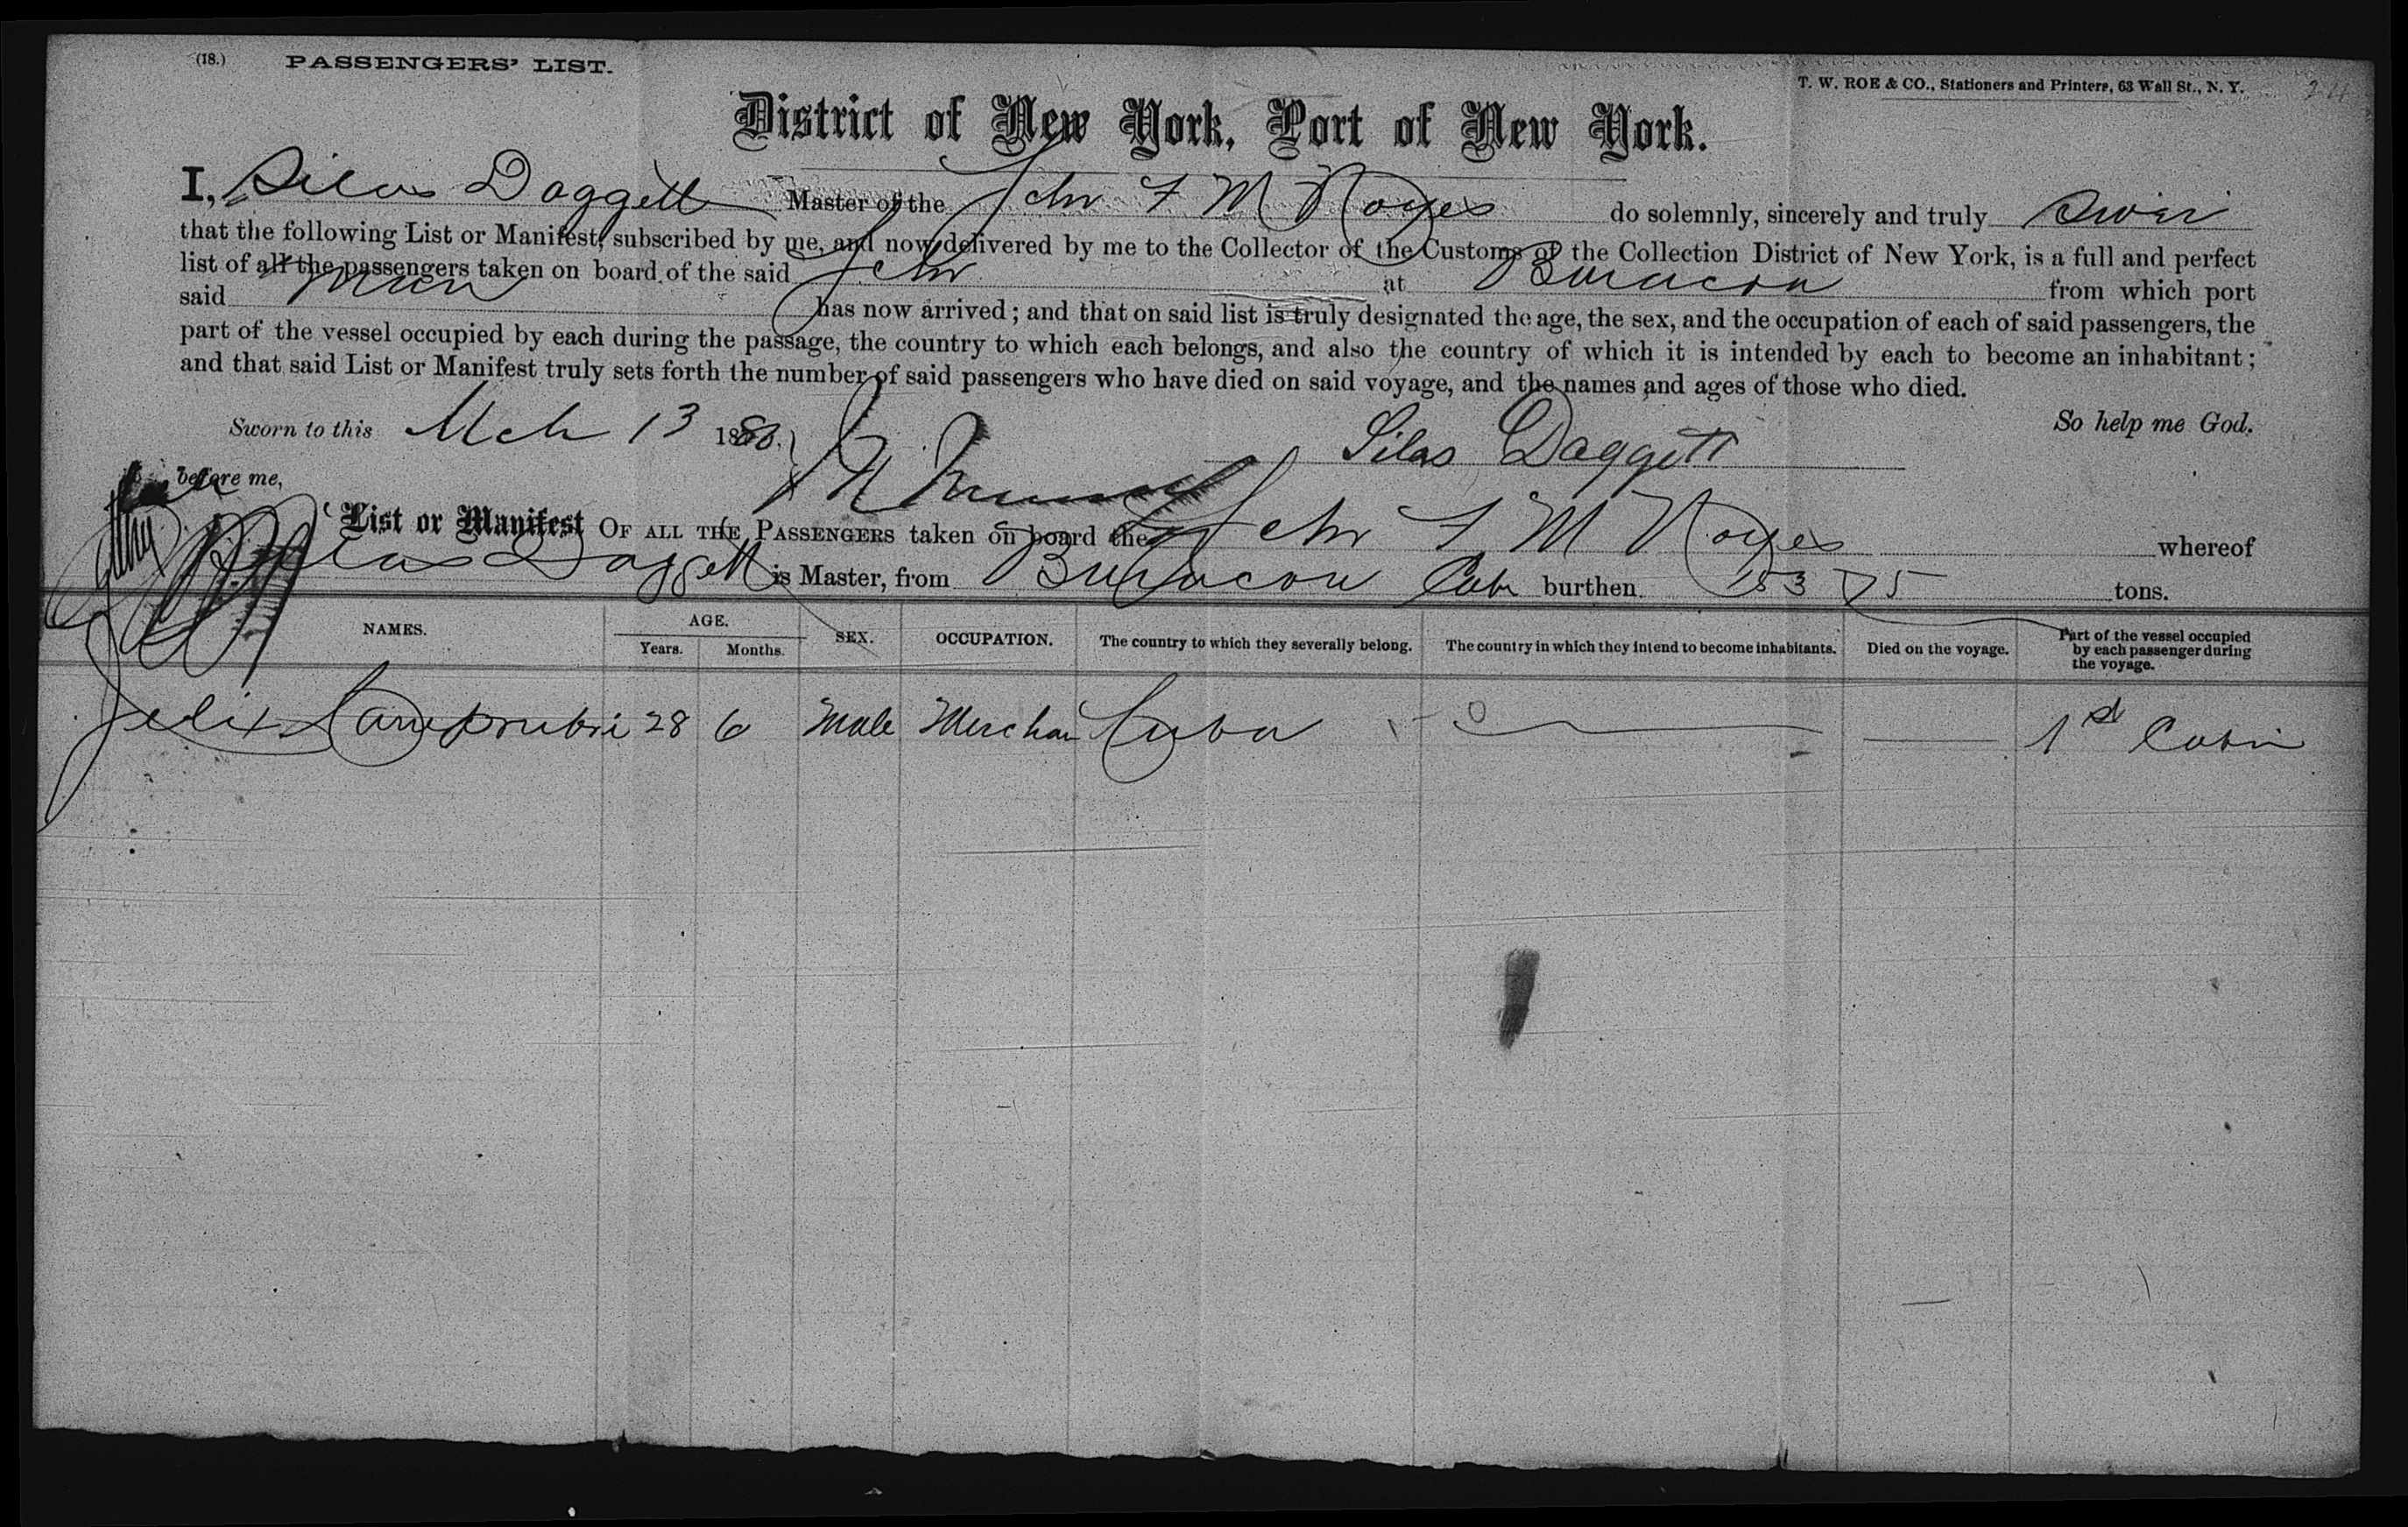 (18.) PASSENGERS' LIST.
T. W. ROE & CO., Stationers and Printers, 63 Wall St., N. Y. 24
District of New York, Port of New York.
I, Silas Daggett Master of the Schr F M Noyes do solemnly, sincerely and truly swear
that the following List or Manifest, subscribed by me, and now delivered by me to the Collector of the Customs of the Collection District of New York, is a full and perfect
list of all the passengers taken on board of the said Schr at Baracoa from which port
said has now arrived; and that on said list is truly designated the age, the sex, and the occupation of each of said passengers, the
part of the vessel occupied by each during the passage, the country to which each belongs, and also the country of which it is intended by each to become an inhabitant;
and that said List or Manifest truly sets forth the number of said passengers who have died on said voyage, and the names and ages of those who died.
So help me God.
Sworn to this Mch 13 1880.
Silas Daggett
before me,
List or Manifest OF ALL THE PASSENGERS taken on board the Schr F M Noyes whereof
Silas Daggett is Master, from Baracoa Cuba burthen 153 75 tons.
NAMES. AGE. Years. Months. SEX. OCCUPATION. The country to which they severally belong. The country in which they intend to become inhabitants. Died on the voyage. Part of the vessel occupied by each passenger during the voyage.
Felix Camprubi 28 6 Male Merchan Cuba 1st Cabin